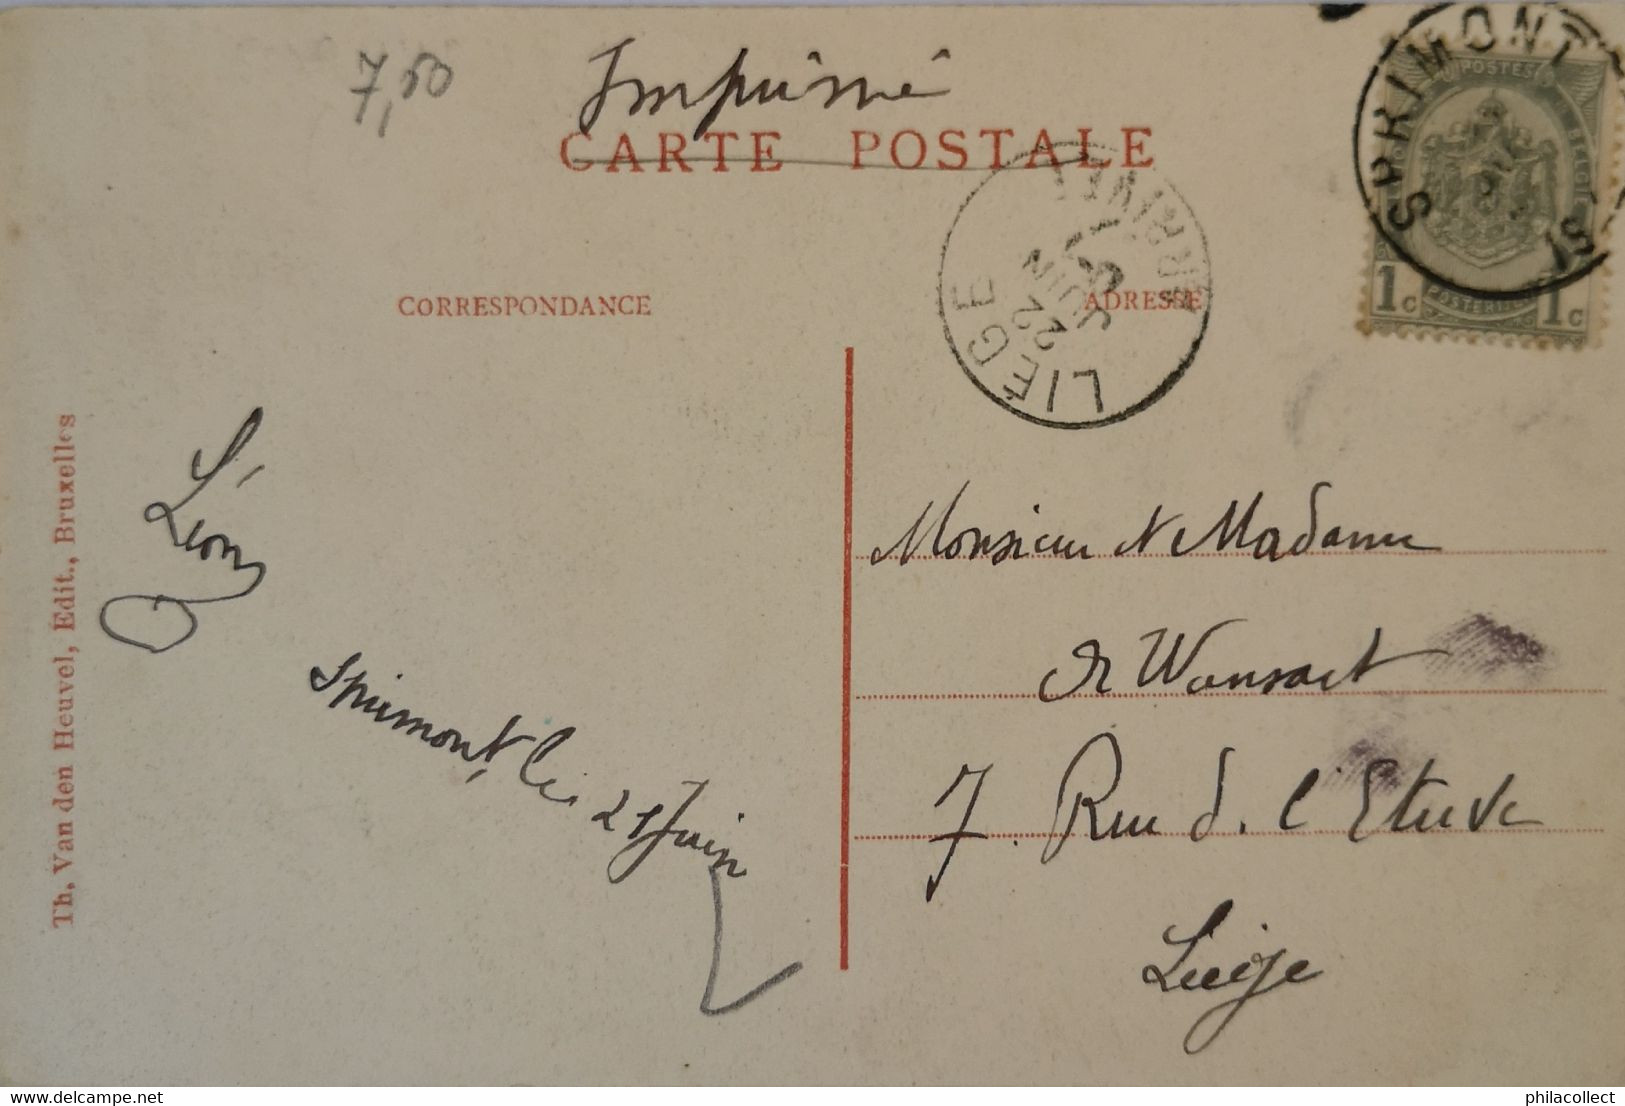 7,50
Imprimé
CARTE POSTALE
SPRIMONT
POSTES
1c 1c
LIÉGE
22 JUIN
ARRIVÉE
CORRESPONDANCE
ADRESSE
Th. Van den Heuvel, Edit., Bruxelles
Léon
Sprimont, le 21 Juin
Monsieur et Madame
Wansart
7. Rue d. l'Etuve
Liége
delcampe.net
philacollect